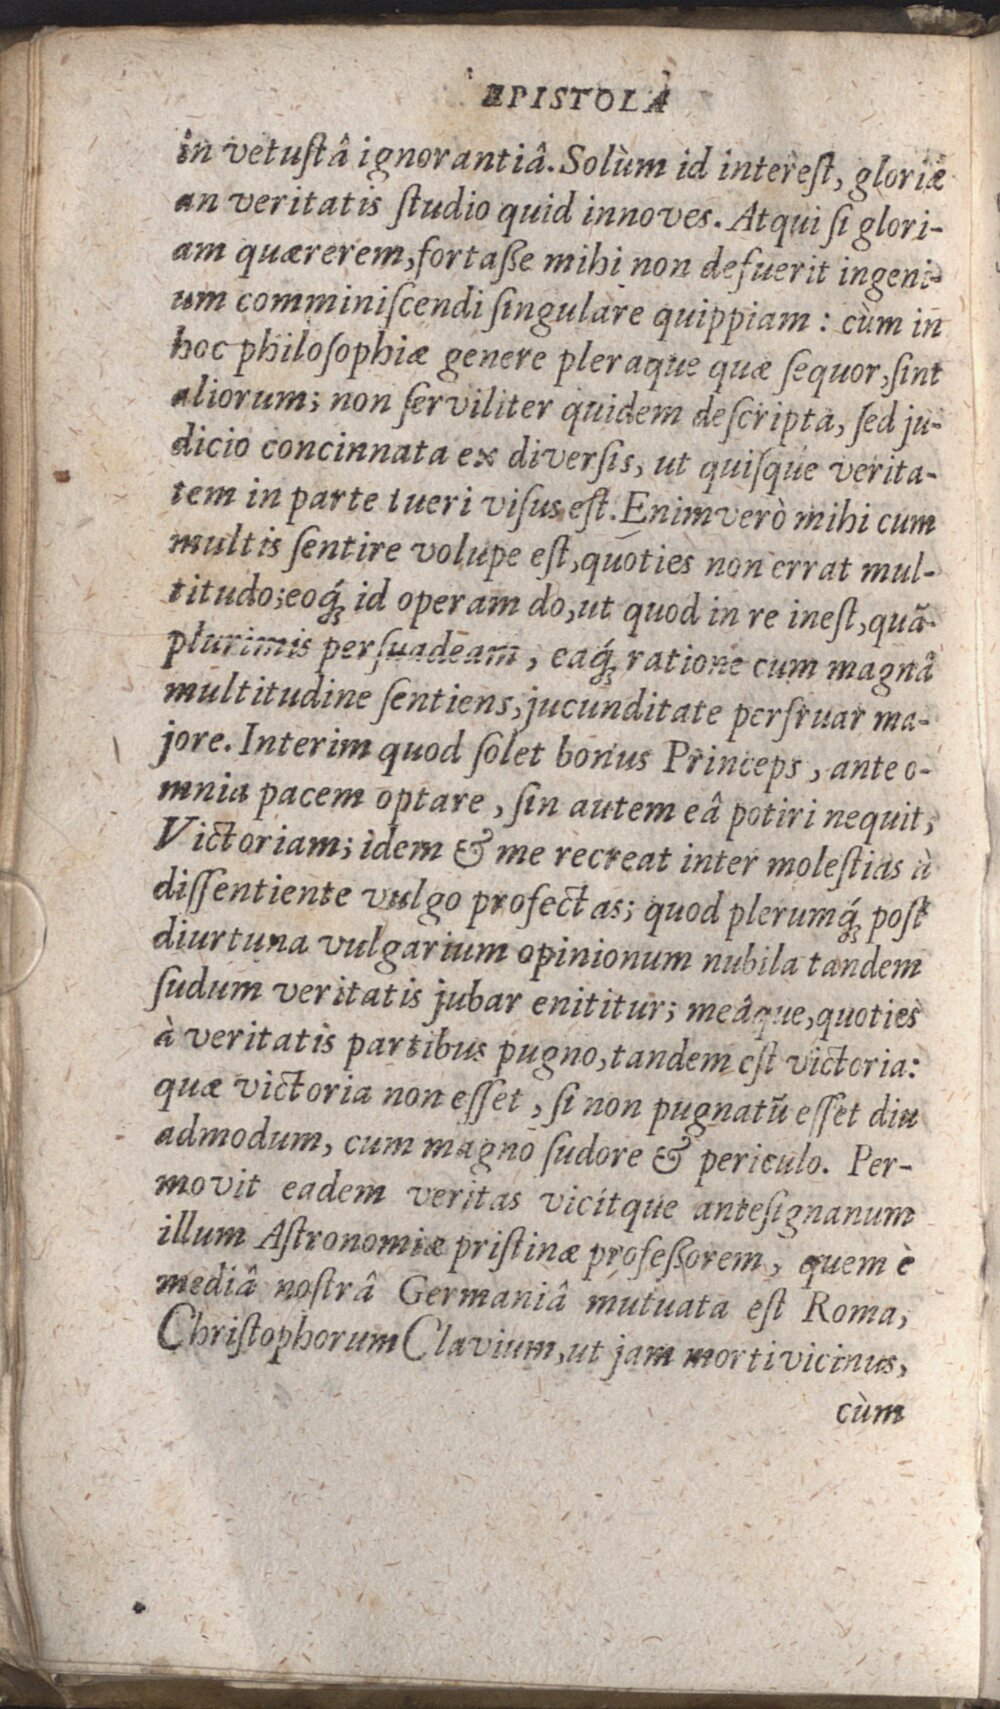 EPISTOLA
in vetuſtâ ignorantiâ. Solùm id intereſt, gloriæ
an veritatis ſtudio quid innoves. Atqui ſi glori-
am quærerem, fortaſſe mihi non defuerit ingeni-
um comminiſcendi ſingulare quippiam : cùm in
hoc philoſophiæ genere pleraque quæ ſequor, ſint
aliorum; non ſerviliter quidem deſcripta, ſed ju-
dicio concinnata ex diverſis, ut quiſque verita-
tem in parte tueri viſus eſt. Enimverò mihi cum
multis ſentire volupe eſt, quoties non errat mul-
titudo; eoq́ꝫ id operam do, ut quod in re ineſt, quā-
plurimis perſuadeam, eaq́ꝫ ratione cum magnâ
multitudine ſentiens, jucunditate perfruar ma-
jore. Interim quod ſolet bonus Princeps, ante o-
mnia pacem optare, ſin autem eâ potiri nequit,
Victoriam; idem & me recreat inter moleſtias à
diſſentiente vulgo profectas; quod plerumq́ꝫ poſt
diurtuna vulgarium opinionum nubila tandem
ſudum veritatis jubar enititur; meâque, quoties
à veritatis partibus pugno, tandem eſt victoria:
quæ victoria non eſſet, ſi non pugnatū eſſet diu
admodum, cum magno ſudore & periculo. Per-
movit eadem veritas vicitque anteſignanum
illum Aſtronomiæ priſtinæ profeſſorem, quem è
mediâ noſtrâ Germaniâ mutuata eſt Roma,
Chriſtophorum Clavium, ut jam morti vicinus,
cùm